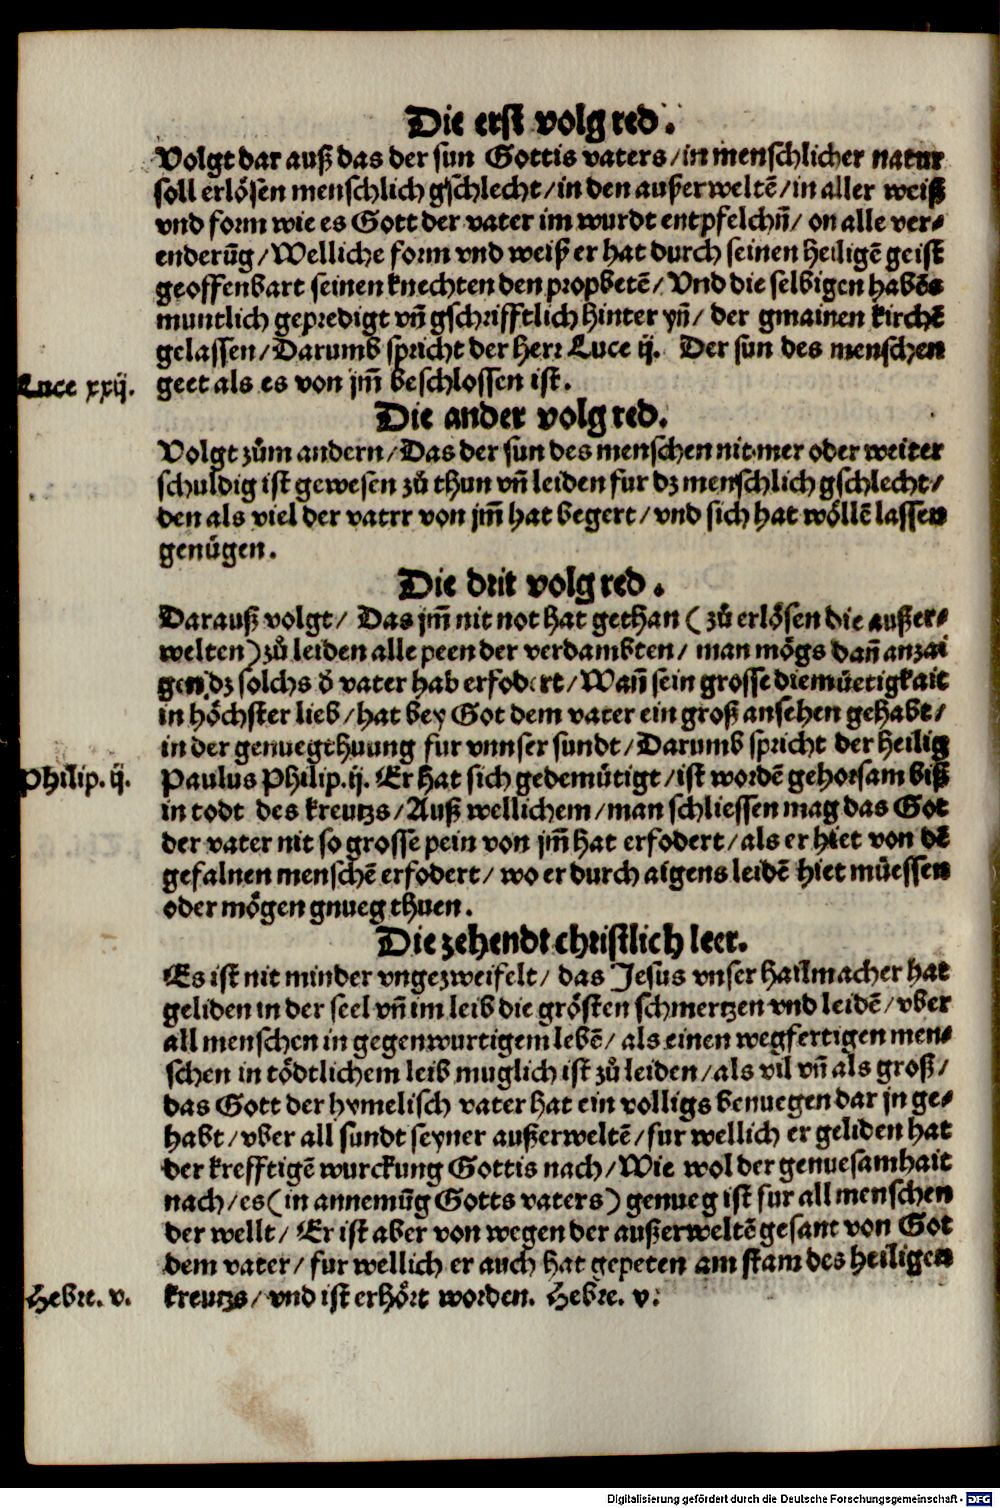 Die erst volg red.
Volgt dar auß das der sun Gottis vaters/in menschlicher natur
soll erlösen menschlich gschlecht/in den außerweltē/in aller weiß
vnd form wie es Gott der vater im wurdt entpfelchn̄/ on alle ver⸗
enderūg/Welliche form vnd weiß er hat durch seinen heiligē geist
geoffenbart seinen knechten den prophetē/Vnd die selbigen habēs
muntlich gepredigt vn̄ gschrifftlich hinter yn̄/ der gmainen kirchē
gelassen/Darumb spricht der herr Luce ij. Der sun des menschen
Luce xxij. geet als es von jm̄ beschlossen ist.
Die ander volg red.
Volgt zům andern/Das der sun des menschen nit mer oder weiter
schuldig ist gewesen zů thun vn̄ leiden fur dz menschlich gschlecht/
den als viel der vatrr von jm̄ hat begert/vnd sich hat wöllē lassen
genügen.
Die drit volg red.
Darauß volgt/ Das jm̄ nit not hat gethan (zů erlösen die außer⸗
welten) zů leiden alle peen der verdambten/ man mögs dan̄ anzai
gen dz solchs d̄ vater hab erfodert/Wan̄ sein grosse diemüetigkait
in höchster lieb/hat bey Got dem vater ein groß ansehen gehabt/
in der genuegthuung fur vnnser sundt/Darumb spricht der heilig
Philip. ij. Paulus Philip. ij. Er hat sich gedemütigt/ist wordē gehorsam biß
in todt des kreutzs/Auß wellichem/man schliessen mag das Got
der vater nit so grosse pein von jm̄ hat erfodert/als er hiet von dē
gefalnen menschē erfodert/ wo er durch aigens leidē hiet müessen
oder mögen gnueg thuen.
Die zehendt christlich leer.
Es ist nit minder vngezweifelt/ das Jesus vnser hailmacher hat
geliden in der seel vn̄ im leib die grösten schmertzen vnd leidē/vber
all menschen in gegenwurtigem lebē/als einen wegfertigen men⸗
schen in tödtlichem leib muglich ist zů leiden/als vil vn̄ als groß/
das Gott der hymelisch vater hat ein volligs benuegen dar jn ge⸗
habt/vber all sundt seyner außerweltē/fur wellich er geliden hat
der krefftigē wurckung Gottis nach/Wie wol der genuesamhait
nach/es (in annemūg Gotts vaters) genueg ist fur all menschen
der wellt/ Er ist aber von wegen der außerweltē gesant von Got
dem vater/fur wellich er auch hat gepeten am stam des heiligen
Hebre. v. kreutzs/vnd ist erhört worden. Hebre. v.
Digitalisierung gefördert durch die Deutsche Forschungsgemeinschaft - DFG